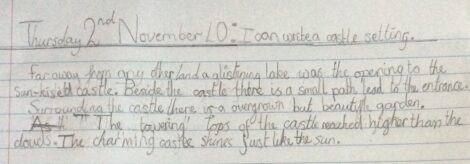 Thursday 2nd November LO: I can write a castle setting.
Far away from any other land a glistening lake was the opening to the
sun-kissed castle. Beside the castle there is a small path lead to the entrance.
Surrounding the castle there is a overgrown but beautiful garden.
The "towering" tops of the castle reached higher than the
clouds. The charming castle shines just like the sun.